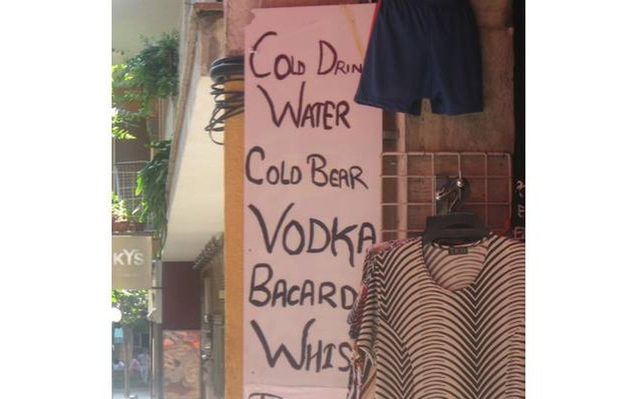 COLD DRIN
WATER
COLD BEAR
VODKA
BACARD
WHIS
KYS